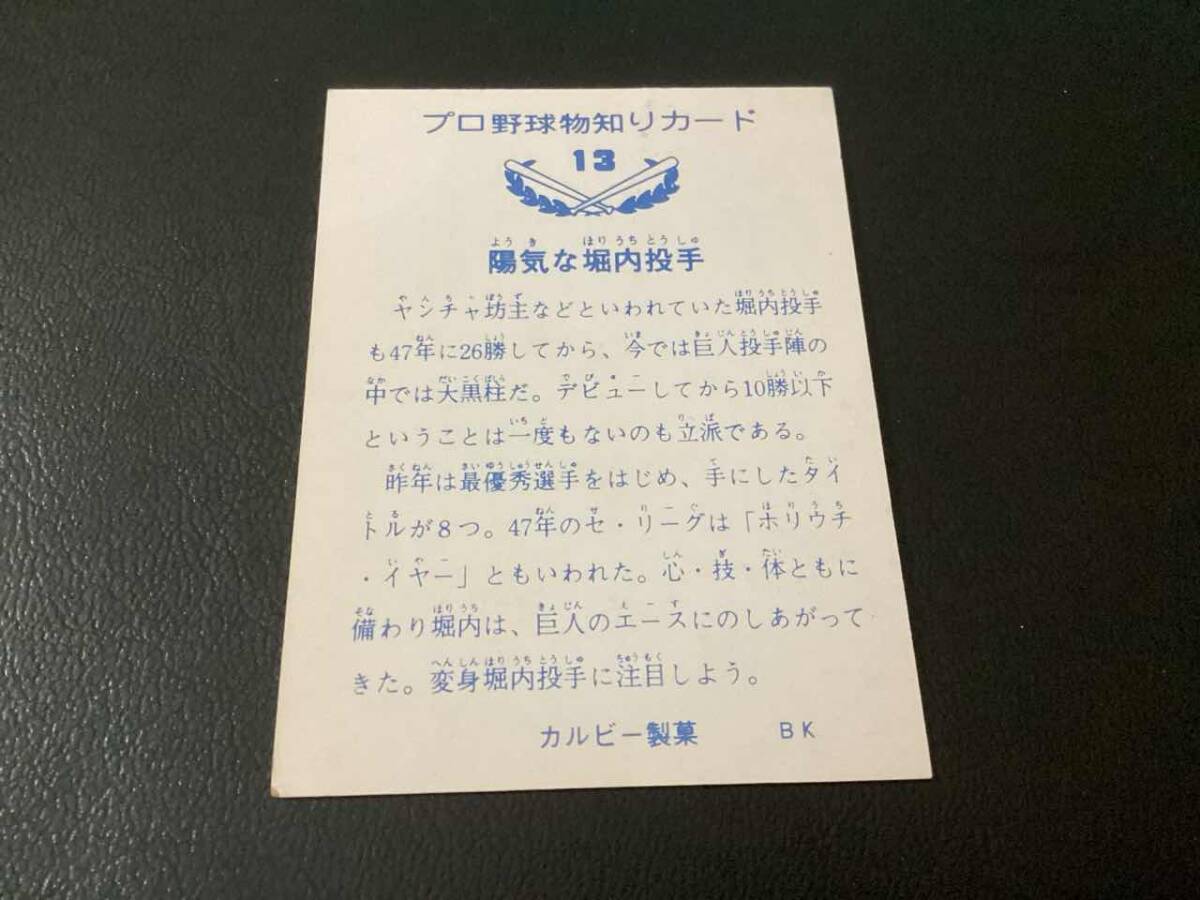 プロ野球物知りカード
13
陽気な堀内投手
ヤンチャ坊主などといわれていた堀内投手
も47年に26勝してから、今では巨人投手陣の
中では大黒柱だ。デビューしてから10勝以下
ということは一度もないのも立派である。
昨年は最優秀選手をはじめ、手にしたタイ
トルが8つ。47年のセ・リーグは「ホリウチ
・イヤー」ともいわれた。心・技・体ともに
備わり堀内は、巨人のエースにのしあがって
きた。変身堀内投手に注目しよう。
カルビー製菓 BK